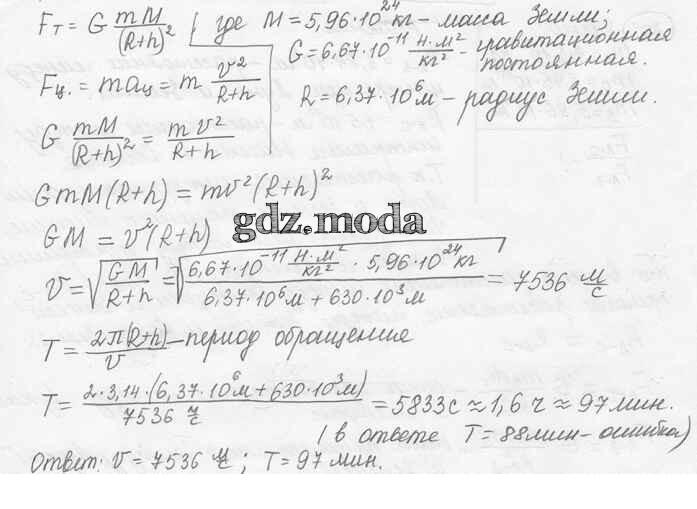 Fт = G mM/(R+h)² где M = 5,96·10²⁴ кг – масса Земли;
G = 6,67·10⁻¹¹ Н·м²/кг² – гравитационная постоянная.
Fц. = maц = m v²/(R+h)
R = 6,37·10⁶ м – радиус Земли.
G mM/(R+h)² = mv²/(R+h)
GmM(R+h) = mv²(R+h)²
GM = v²(R+h)
gdz.moda
v = √(GM/(R+h)) = √((6,67·10⁻¹¹ Н·м²/кг² · 5,96·10²⁴ кг)/(6,37·10⁶ м + 630·10³ м)) = 7536 м/с
T = 2π(R+h)/v – период обращения
T = 2·3,14·(6,37·10⁶ м + 630·10³ м)/(7536 м/с) = 5833 с ≈ 1,6 ч ≈ 97 мин.
(в ответе T = 88 мин – ошибка)
Ответ: v = 7536 м/с; T = 97 мин.